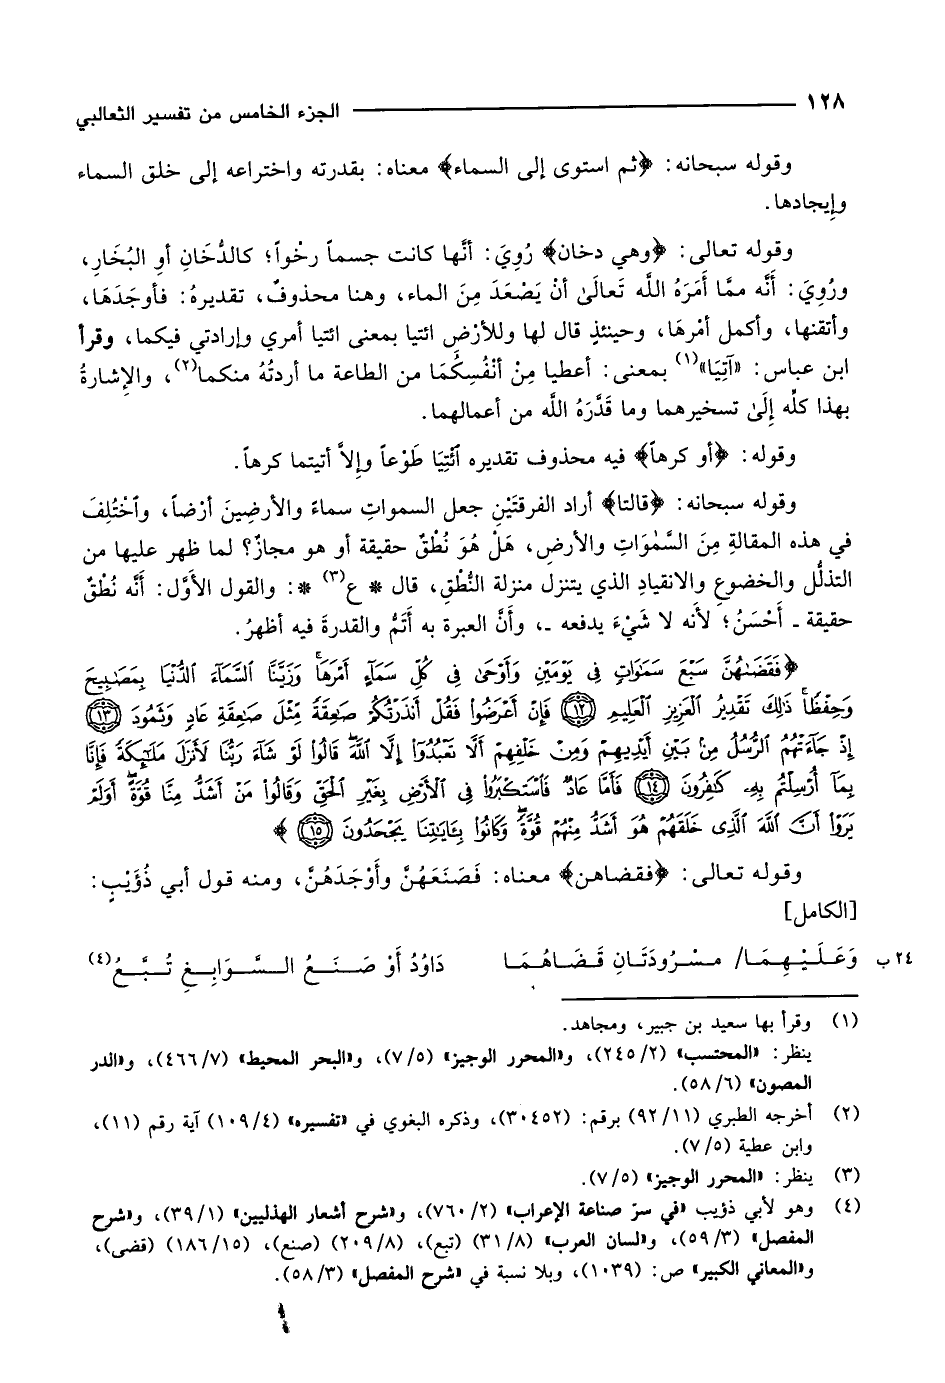 ١٢٨ الجزء الخامس من تفسير الثعالبي
وقوله سبحانه: ﴿ثم استوى إلى السماء﴾ معناه: بقدرته واختراعه إلى خلق السماء
وإيجادها.
وقوله تعالى: ﴿وهي دخان﴾ رُوِيَ: أنَّها كانت جسماً رخْواً؛ كالدُّخَانِ أو البُخَارِ،
ورُوِيَ: أَنَّه ممَّا أَمَرَهُ اللَّه تَعَالَىٰ أنْ يَصْعَدَ مِنَ الماء، وهنا محذوفٌ، تقديرهُ: فأوجَدَهَا،
وأتقنها، وأكمل أمْرهَا، وحينئذٍ قال لها وللأرْضِ ائتيا بمعنى ائتيا أمري وإرادتي فيكما، وقرأ
ابن عباس: «آتِيَا»(١) بمعنى: أعطيا مِنْ أنْفُسِكُمَا من الطاعة ما أردتُهُ منكما(٢)، والإشارةُ
بهذا كلِّه إِلَىٰ تسخيرهما وما قَدَّرَهُ اللَّه من أعمالهما.
وقوله: ﴿أو كرهاً﴾ فيه محذوف تقديره ٱئْتِيَا طَوْعاً وإلاَّ أتيتما كرهاً.
وقوله سبحانه: ﴿قالتا﴾ أراد الفرقتَيْنِ جعل السمواتِ سماءً والأرضِينَ أرْضاً، وٱخْتُلِفَ
في هذه المقالةِ مِنَ السَّمٰوَاتِ والأرض، هَلْ هُوَ نُطْقٌ حقيقة أو هو مجازٌ؟ لما ظهر عليها من
التذلُّل والخضوعِ والانقيادِ الذي يتنزل منزلة النُّطْقِ، قال * ع(٣) *: والقول الأوَّل: أَنَّه نُطْقٌ
حقيقة ـ أَحْسَنُ؛ لأنه لا شَيْءَ يدفعه ـ، وأنَّ العبرة به أَتَمُّ والقدرةَ فيه أظهرُ.
﴿فَقَضَىٰهُنَّ سَبْعَ سَمَٰوَاتٍ فِي يَوْمَيْنِ وَأَوْحَىٰ فِي كُلِّ سَمَآءٍ أَمْرَهَا ۚ وَزَيَّنَّا ٱلسَّمَآءَ ٱلدُّنْيَا بِمَصَٰبِيحَ
وَحِفْظًا ۚ ذَٰلِكَ تَقْدِيرُ ٱلْعَزِيزِ ٱلْعَلِيمِ ﴿١٢﴾ فَإِنْ أَعْرَضُوا۟ فَقُلْ أَنذَرْتُكُمْ صَٰعِقَةً مِّثْلَ صَٰعِقَةِ عَادٍ وَثَمُودَ ﴿١٣﴾
إِذْ جَآءَتْهُمُ ٱلرُّسُلُ مِنۢ بَيْنِ أَيْدِيهِمْ وَمِنْ خَلْفِهِمْ أَلَّا تَعْبُدُوٓا۟ إِلَّا ٱللَّهَ ۖ قَالُوا۟ لَوْ شَآءَ رَبُّنَا لَأَنزَلَ مَلَٰٓئِكَةً فَإِنَّا
بِمَآ أُرْسِلْتُم بِهِۦ كَٰفِرُونَ ﴿١٤﴾ فَأَمَّا عَادٌ فَٱسْتَكْبَرُوا۟ فِي ٱلْأَرْضِ بِغَيْرِ ٱلْحَقِّ وَقَالُوا۟ مَنْ أَشَدُّ مِنَّا قُوَّةً ۖ أَوَلَمْ
يَرَوْا۟ أَنَّ ٱللَّهَ ٱلَّذِى خَلَقَهُمْ هُوَ أَشَدُّ مِنْهُمْ قُوَّةً ۖ وَكَانُوا۟ بِـَٔايَٰتِنَا يَجْحَدُونَ ﴿١٥﴾ ﴾
وقوله تعالى: ﴿فقضاهن﴾ معناه: فَصَنَعَهُنَّ وأَوْجَدَهُنَّ، ومنه قول أبي ذُؤَيْبٍ:
[الكامل]
٢٤ ب وَعَلَيْهِمَا/ مَسْرُودَتَانِ قَضَاهُمَا دَاوُدُ أَوْ صَنَعُ السَّوَابِغِ تُبَّعُ(٤)
(١) وقرأ بها سعيد بن جبير، ومجاهد.
ينظر: «المحتسب» (٢٤٥/٢)، و«المحرر الوجيز» (٧/٥)، و«البحر المحيط» (٤٦٦/٧)، و«الدر
المصون» (٥٨/٦).
(٢) أخرجه الطبري (٩٢/١١) برقم: (٣٠٤٥٢)، وذكره البغوي في «تفسيره» (١٠٩/٤) آية رقم (١١)،
وابن عطية (٧/٥).
(٣) ينظر: «المحرر الوجيز» (٧/٥).
(٤) وهو لأبي ذؤيب «في سرّ صناعة الإعراب» (٧٦٠/٢)، و«شرح أشعار الهذليين» (٣٩/١)، و«شرح
المفصل» (٥٩/٣)، و«لسان العرب» (٣١/٨) (تبع)، (٢٠٩/٨) (صنع)، (١٨٦/١٥) (قضى)،
و«المعاني الكبير» ص: (١٠٣٩)، وبلا نسبة في «شرح المفصل» (٥٨/٣).